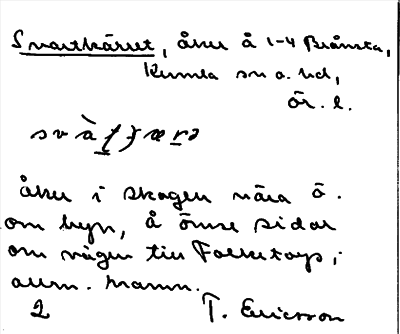 Svartkärret, åker å 1-4 Brånsta,
Kumla sn o. hd,
Ör. l.
åker i skogen nära ö.
om byn, å ömse sidor
om vägen till Folketorp,
allm. namn.
2 T. Ericsson